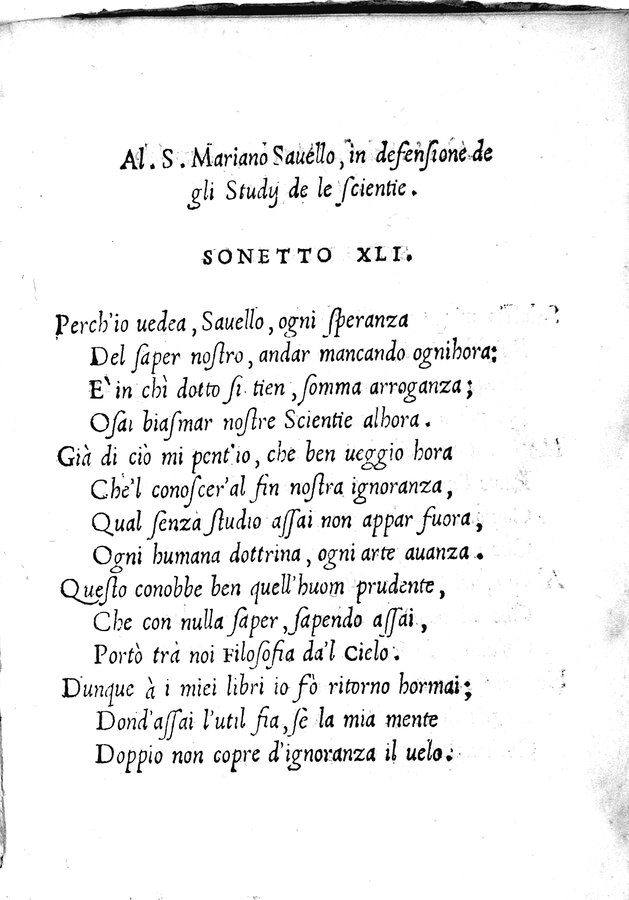 Al. S. Mariano Sauello, in defenſione de
gli Study de le ſcientie.
SONETTO XLI.
Perch'io uedea, Sauello, ogni ſperanza
Del ſaper noſtro, andar mancando ognihora;
E' in chì dotto ſi tien, ſomma arroganza;
Oſai biaſmar noſtre Scientie alhora.
Già di ciò mi pent'io, che ben ueggio hora
Che'l conoſcer'al fin noſtra ignoranza,
Qual ſenza ſtudio aſſai non appar fuora,
Ogni humana dottrina, ogni arte auanza.
Queſto conobbe ben quell'huom prudente,
Che con nulla ſaper, ſapendo aſſai,
Portò trà noi Filoſofia da'l Cielo.
Dunque à i miei libri io fò ritorno hormai;
Dond'aſſai l'util fia, ſè la mia mente
Doppio non copre d'ignoranza il uelo.